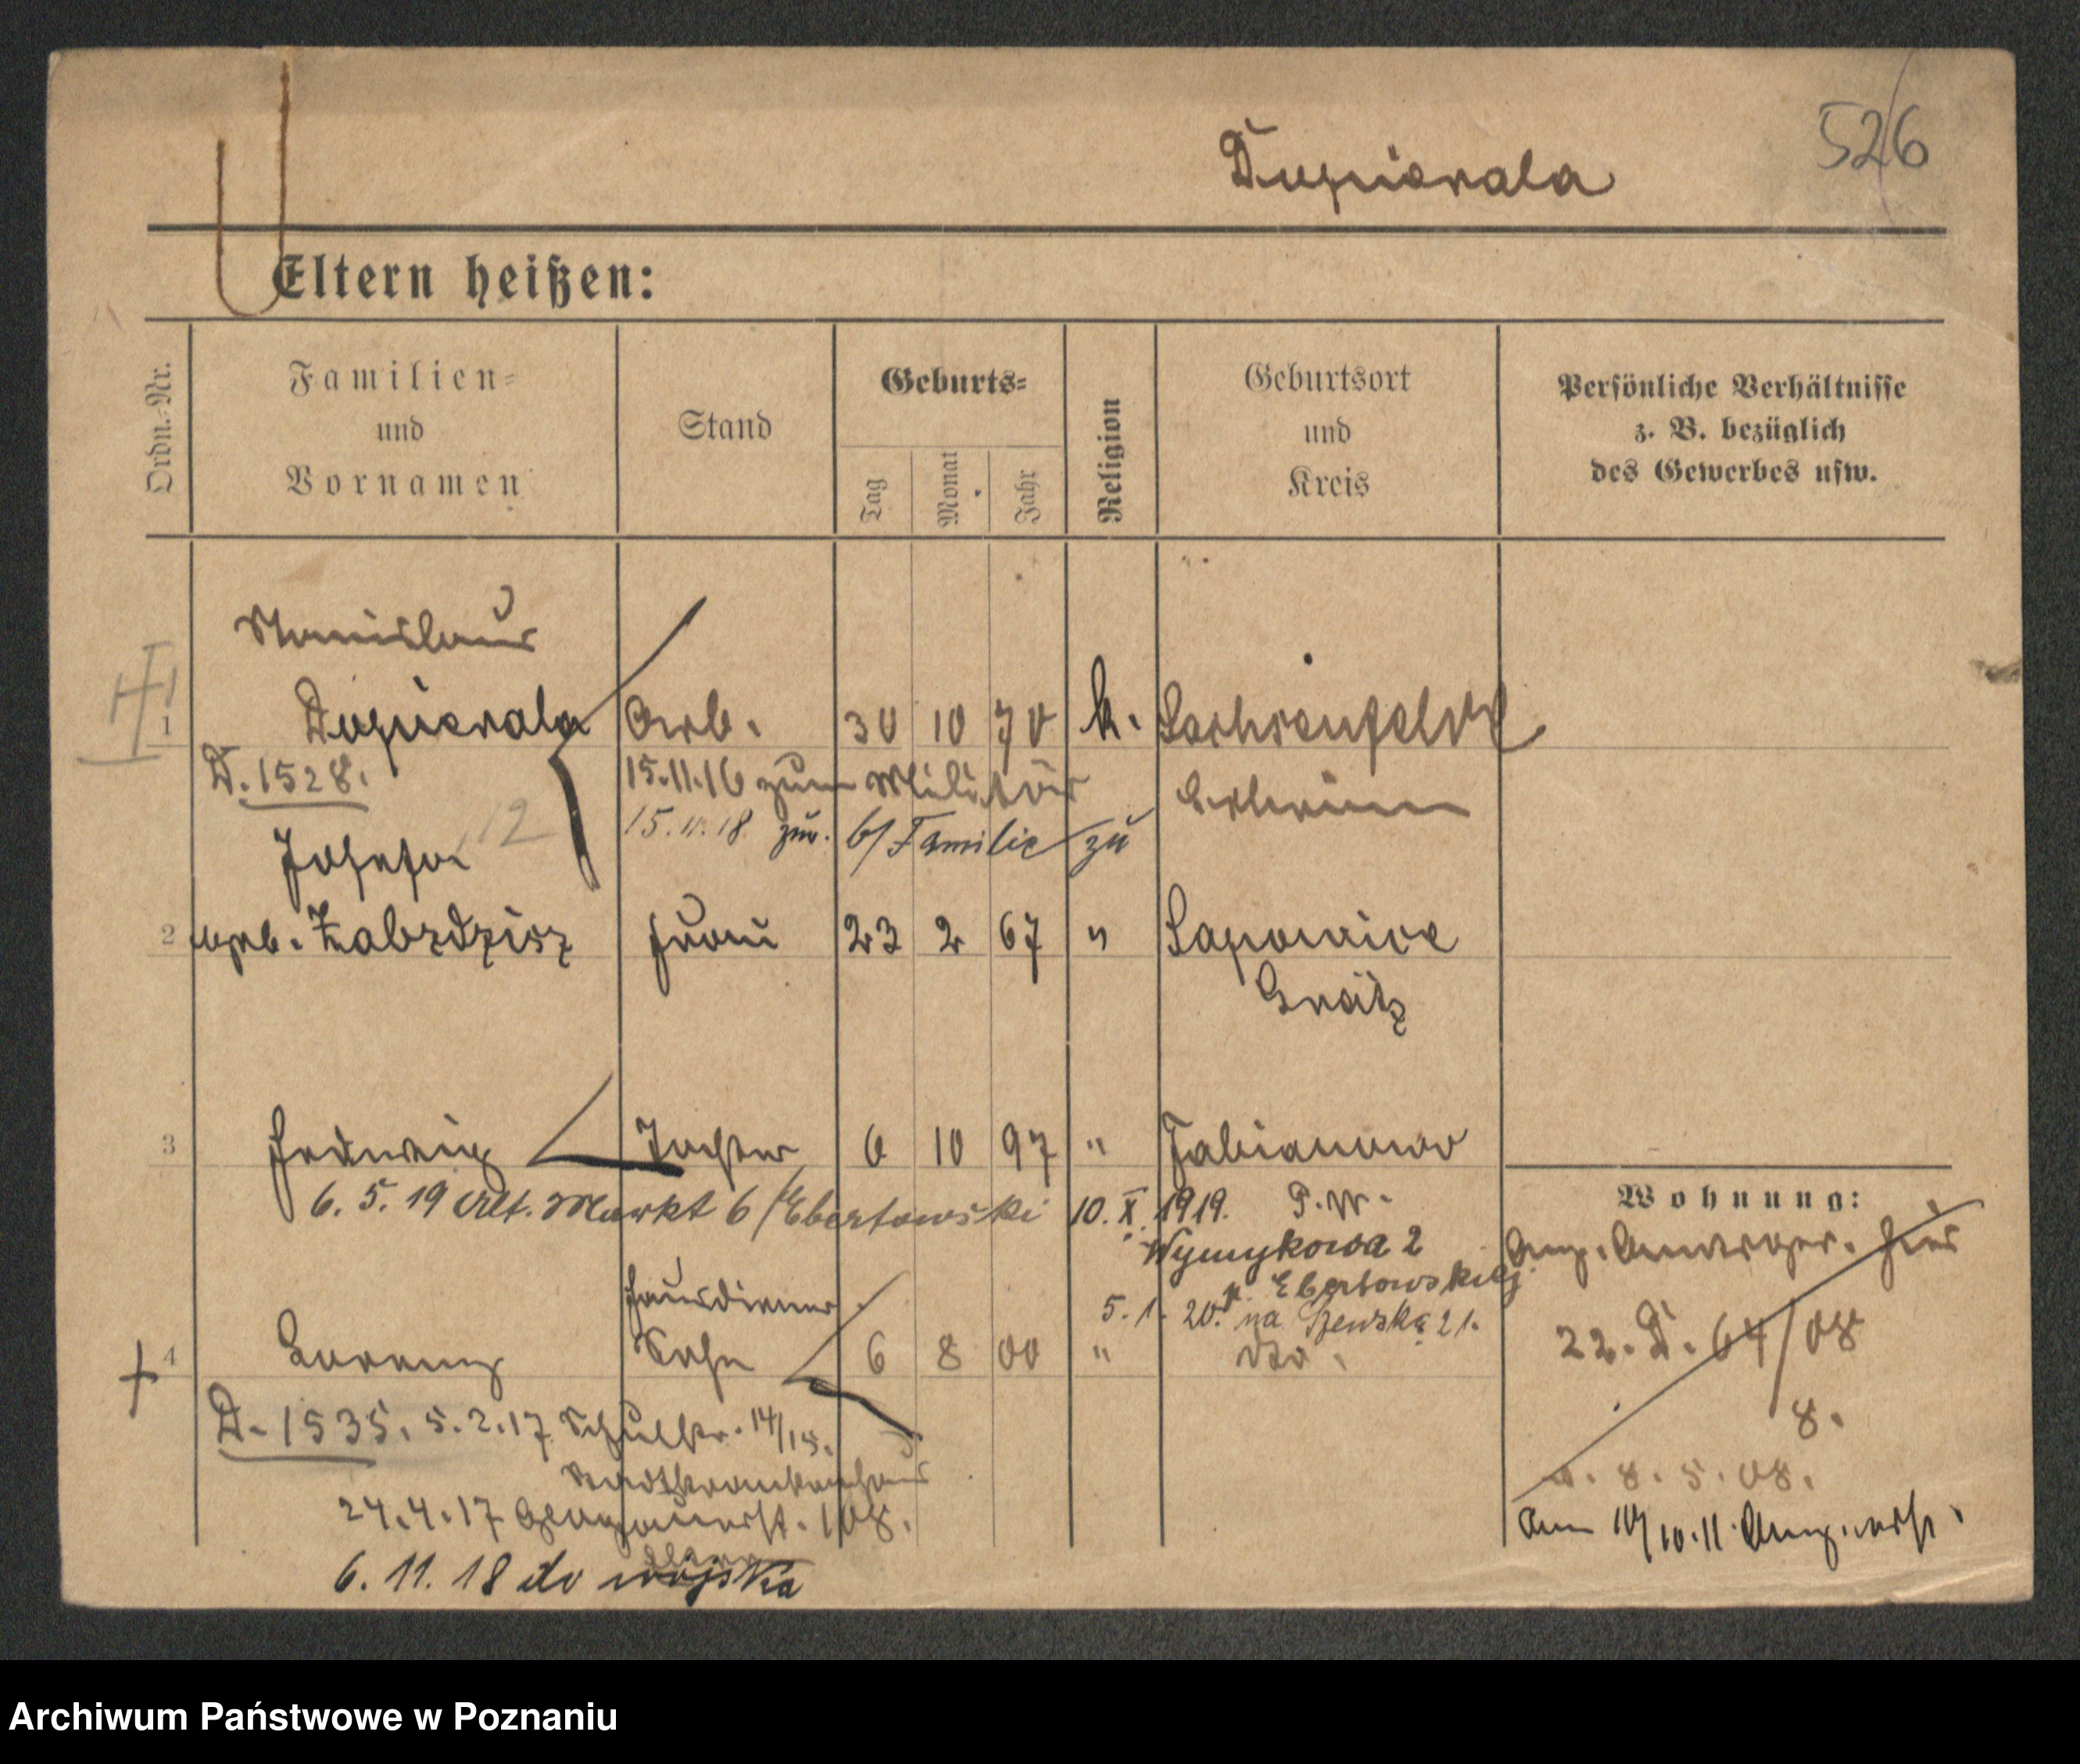 526
Dupierala
Eltern heißen:
Ordn.-Nr.
Familien-
und
Vornamen
Stand
Geburts-
Tag
Monat
Jahr
Religion
Geburtsort
und
Kreis
Persönliche Verhältnisse
z. B. bezüglich
des Gewerbes usw.
Stanislaus
1 Dupierala Arb. 30 10 70 k. Sachsenfeld
D. 1528. 15.11.16 zum Militär
12 15.11.18 zur. b/ Familie zu
Josefa
2 geb. Frau 23 2 67 " Sapowice
Grätz
3 Hedwig Tochter 6 10 97 " Fabianowo
6. 5. 19 Alt. Markt 6 / Ebertowski 10. X. 1919. P.W.
Wymykowa 2
p. Ebertowskiej
5. 1. 20. na Szewską 21.
Hausdiener
4 Lorenz Sohn 6 8 00 " dto.
D. 1535. 5.2.17 Schulstr. 14/15.
Stadtkrankenhaus
24.4.17 Glogauerst. 108.
6. 11. 18 do wojska
Wohnung:
hier
22. D. 64/08
8.
v. 8. 5. 08.
am 10/10.11
Archiwum Państwowe w Poznaniu